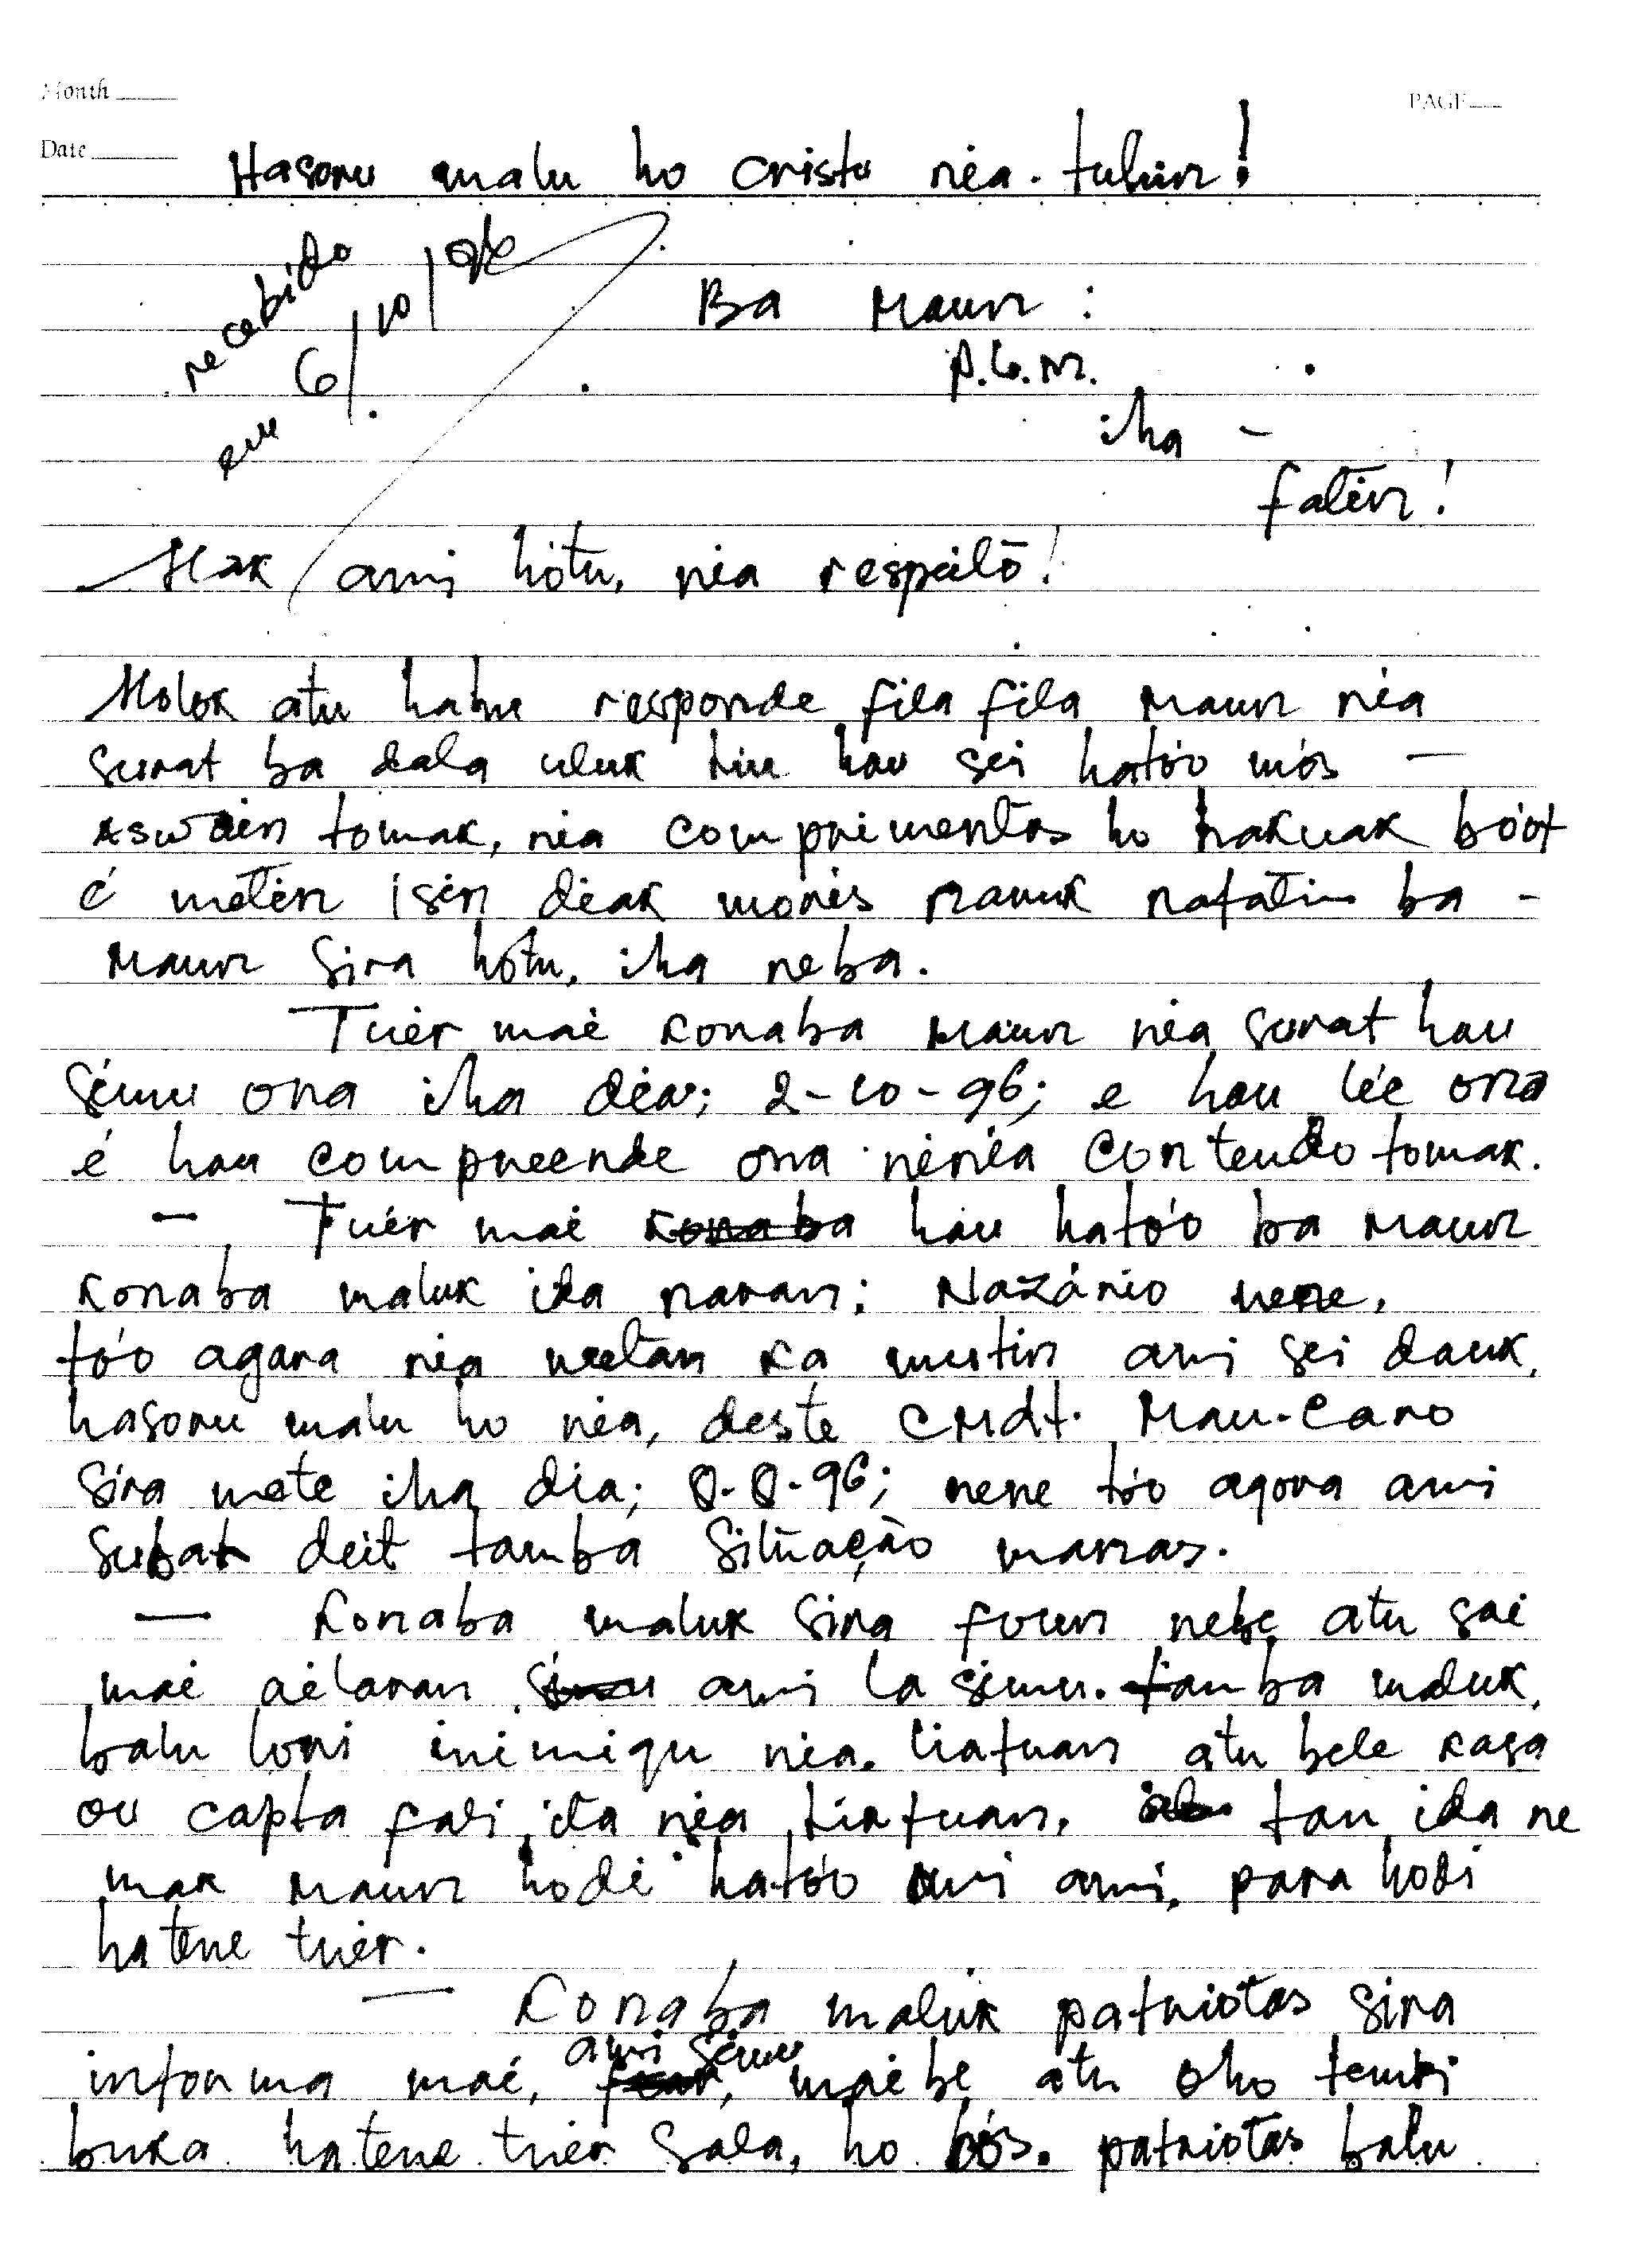 Month
PAGE
Date
Hasoru malu ho Cristu néa. tulun!
recebido
em 6/10/96
Ba Maun :
P.G.M.
iha -
fatin!
Hak ami hótu, néa respeitõ!
Molok atu hahu responde fila fila Maun néa
surat ba dala uluk liu hau sei ható'o mós -
Aswáin tomak, néa comprimentos ho hakuak bó'ot
é metin isin diak moris naruk nafatin ba -
Maun sira hótu, iha neba.
Tuér maé Konaba Maun néa surat hau
simu ona iha déa; 2-10-96; e hau lée ona
é hau compreende ona nénéa Contendo tomak.
- Tuér maé Konaba hau ható'o ba Maun
Konaba maluk ida naran; Nazário nene,
tó'o agara néa metan ka mutin ami sei dauk,
hasoru malu ho néa, deste CMdt. Mau-Caro
sira mate iha dia; 8-8-96; nene tó'o agora ami
subat deit tamba Situação manas.
- Konaba maluk sira foun nebe atu sai
maé aélaran simu ami la simu. tamba maluk,
balu lori inimigu néa. liafuan atu bele kasa
ou capta fali ita néa liafuan, tan ida ne
mak Maun hodi ható'o ami, para hodi
hatene tuér.
- Konaba maluk patriotas sira
ami simu
informa maé, maébe atu oho temki
buka hatene tuér sala, ho lós. patriotas balu